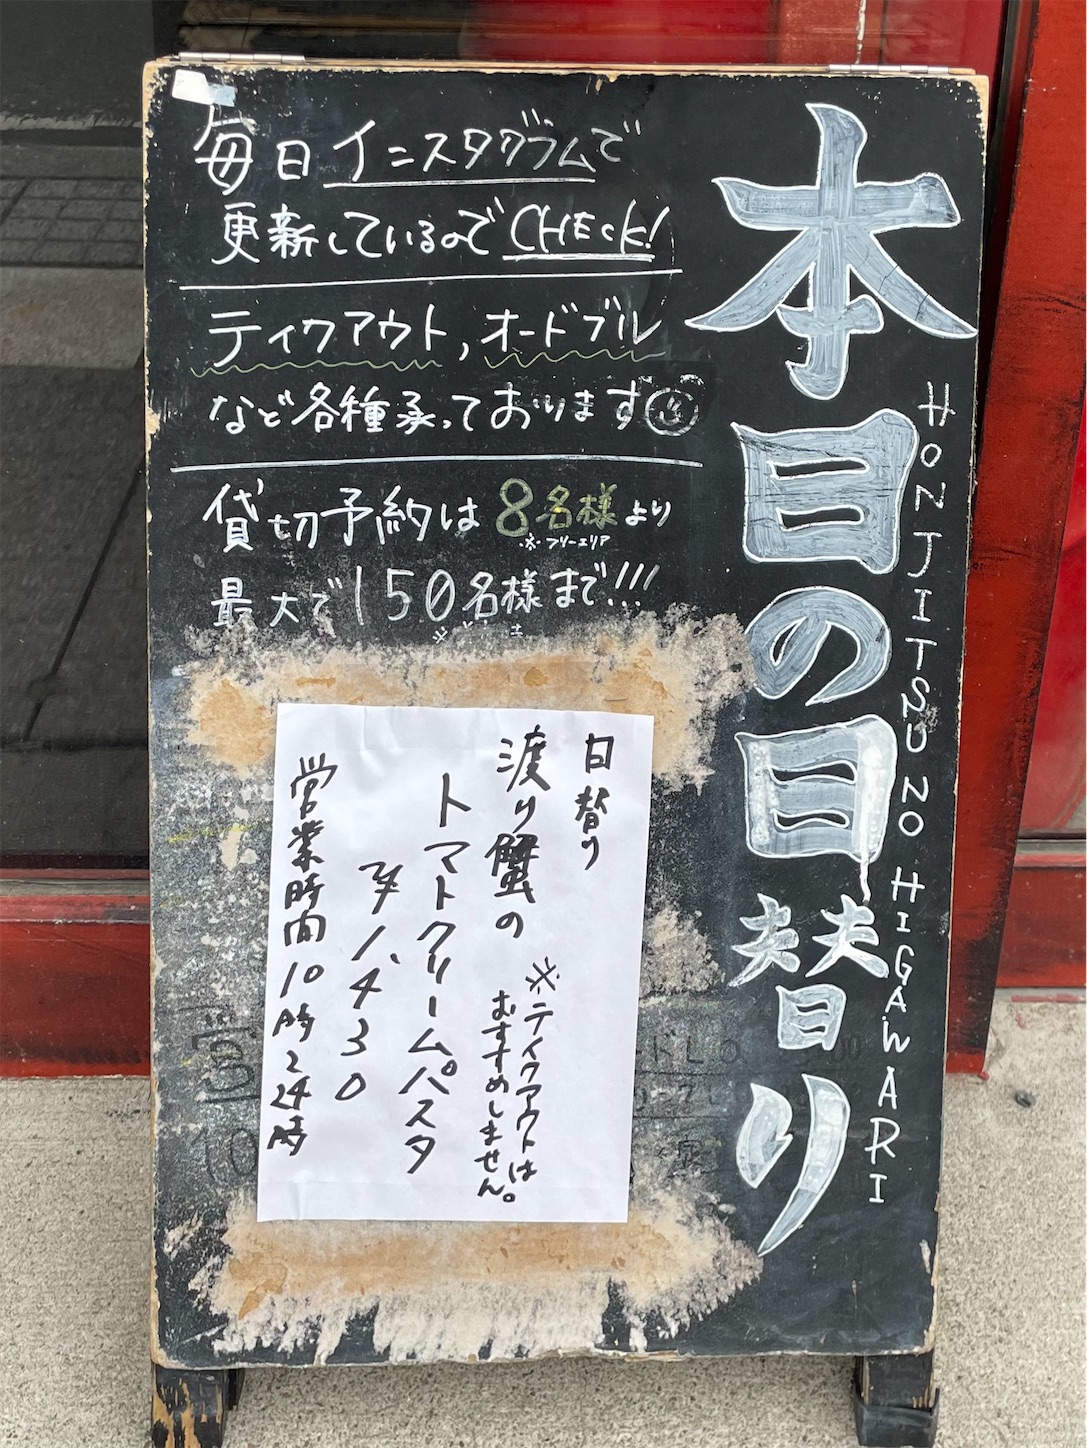 本日の日替り
HONJITSU NO HIGAWARI
毎日インスタグラムで
更新しているのでCHECK!
ティクアウト,オードブル
など各種承っております
貸切予約は8名様より
※フリーエリア
最大で150名様まで!!!
日替り
渡り蟹の
トマトクリームパスタ
※テイクアウトは
おすすめしません。
¥1,430
営業時間10時~24時